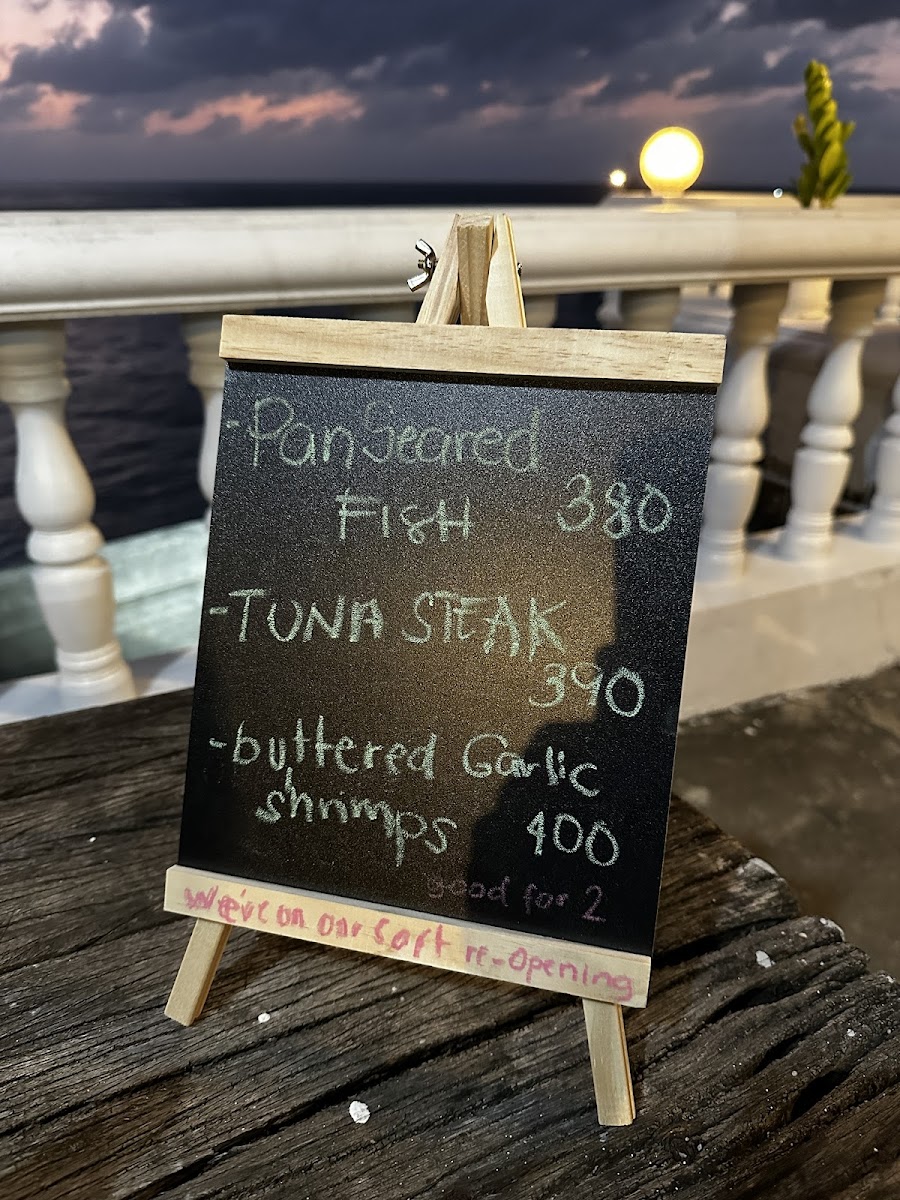 -Pan Seared
FISH 380
-TUNA STEAK
390
-buttered Garlic
shrimps 400
good for 2
We're on our Soft re-Opening